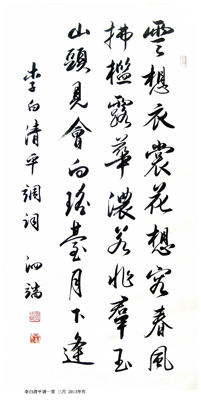 雲想衣裳花想容春風
拂檻露華濃若非羣玉
山頭見會向瑤臺月下逢
李白清平調詞 泗端
李白清平调一首 三尺 2013年